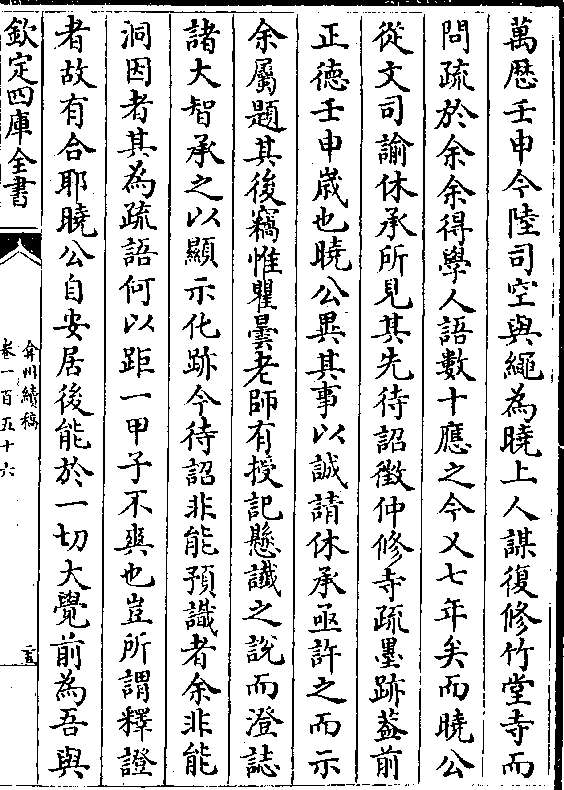 萬歴壬申今陸司空與繩為曉上人謀復修竹堂寺而
問疏於余余得學人語數十應之今又七年矣而曉公
從文司諭休承所見其先待詔徴仲修寺疏墨跡葢前
正德壬申嵗也曉公異其事以誠請休承亟許之而示
余屬題其後竊惟瞿曇老師有授記懸讖之說而澄誌
諸大智承之以顯示化跡今待詔非能預識者余非能
洞因者其為疏語何以距一甲子不爽也豈所謂釋證
者故有合耶曉公自安居後能於一切大覺前為吾與
欽定四庫全書
弇州續稿
卷一百五十六